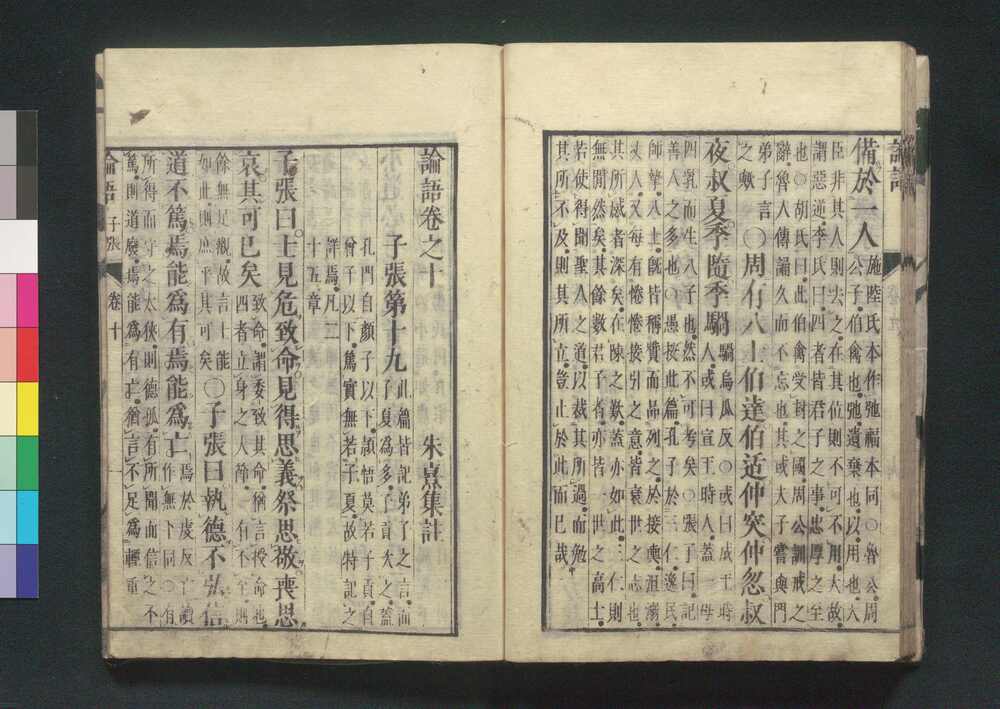 論語
備於一人
施陸氏本作弛福本同○魯公周
公子伯禽也弛遺棄也以用也大
臣非其人則去之在其位則不可不用大故
謂惡逆李氏曰四者皆君子之事忠厚之至
也○胡氏曰此伯禽受封之國周公訓戒之
辭魯人傳誦久而不忘也其或夫子嘗與門
弟子言
之歟
○周有八士伯達伯适仲突仲忽叔
夜叔夏季隨季騧
騧烏瓜反○或曰成王時
人或曰宣王時人蓋一母
四乳而生八子也然不可考矣○張子曰記
善人之多也○愚按此篇孔子於三仁逸民
師摯八士既皆稱贊而品列之於接輿沮溺
丈人又每有惓惓接引之意皆衰世之志也
其所感者深矣在陳之歎蓋亦如此三仁則
無間然矣其餘數君子者亦皆一世之高士
若使得聞聖人之道以裁其所過而勉
其所不及則其所立豈止於此而已哉
論語卷之十 朱熹集註
子張第十九
此篇皆記弟子之言而
子夏爲多子貢次之蓋
孔門自顏子以下穎悟莫若子貢自
曾子以下篤實無若子夏故特記之
詳焉凡二
十五章
子張曰士見危致命見得思義祭思敬喪思
哀其可已矣
致命謂委致其命猶言授命也
四者立身之大節一有不至則
餘無足觀故言士能
如此則庶乎其可矣
○子張曰執德不弘信
道不篤焉能爲有焉能爲亡
焉於虔反亡讀
作無下同○有
所得而守之太狹則德孤有所聞而信之不
篤則道廢焉能爲有亡猶言不足爲輕重
論語 子張 卷十 一